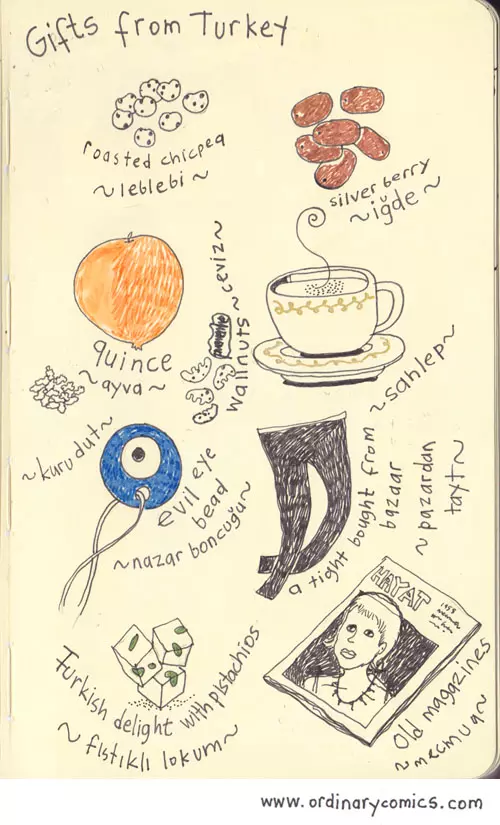 Gifts from Turkey
roasted chicpea
~leblebi~
silver berry
~iğde~
quince
~ayva~
wallnuts ~ceviz~
~sahlep~
~kuru dut~
evil eye
bead
~nazar boncuğu~
a tight bought from
bazaar
~pazardan
tayt~
Turkish delight with pistachios
~fıstıklı lokum~
HAYAT
Old magazines
~mecmua~
www.ordinarycomics.com